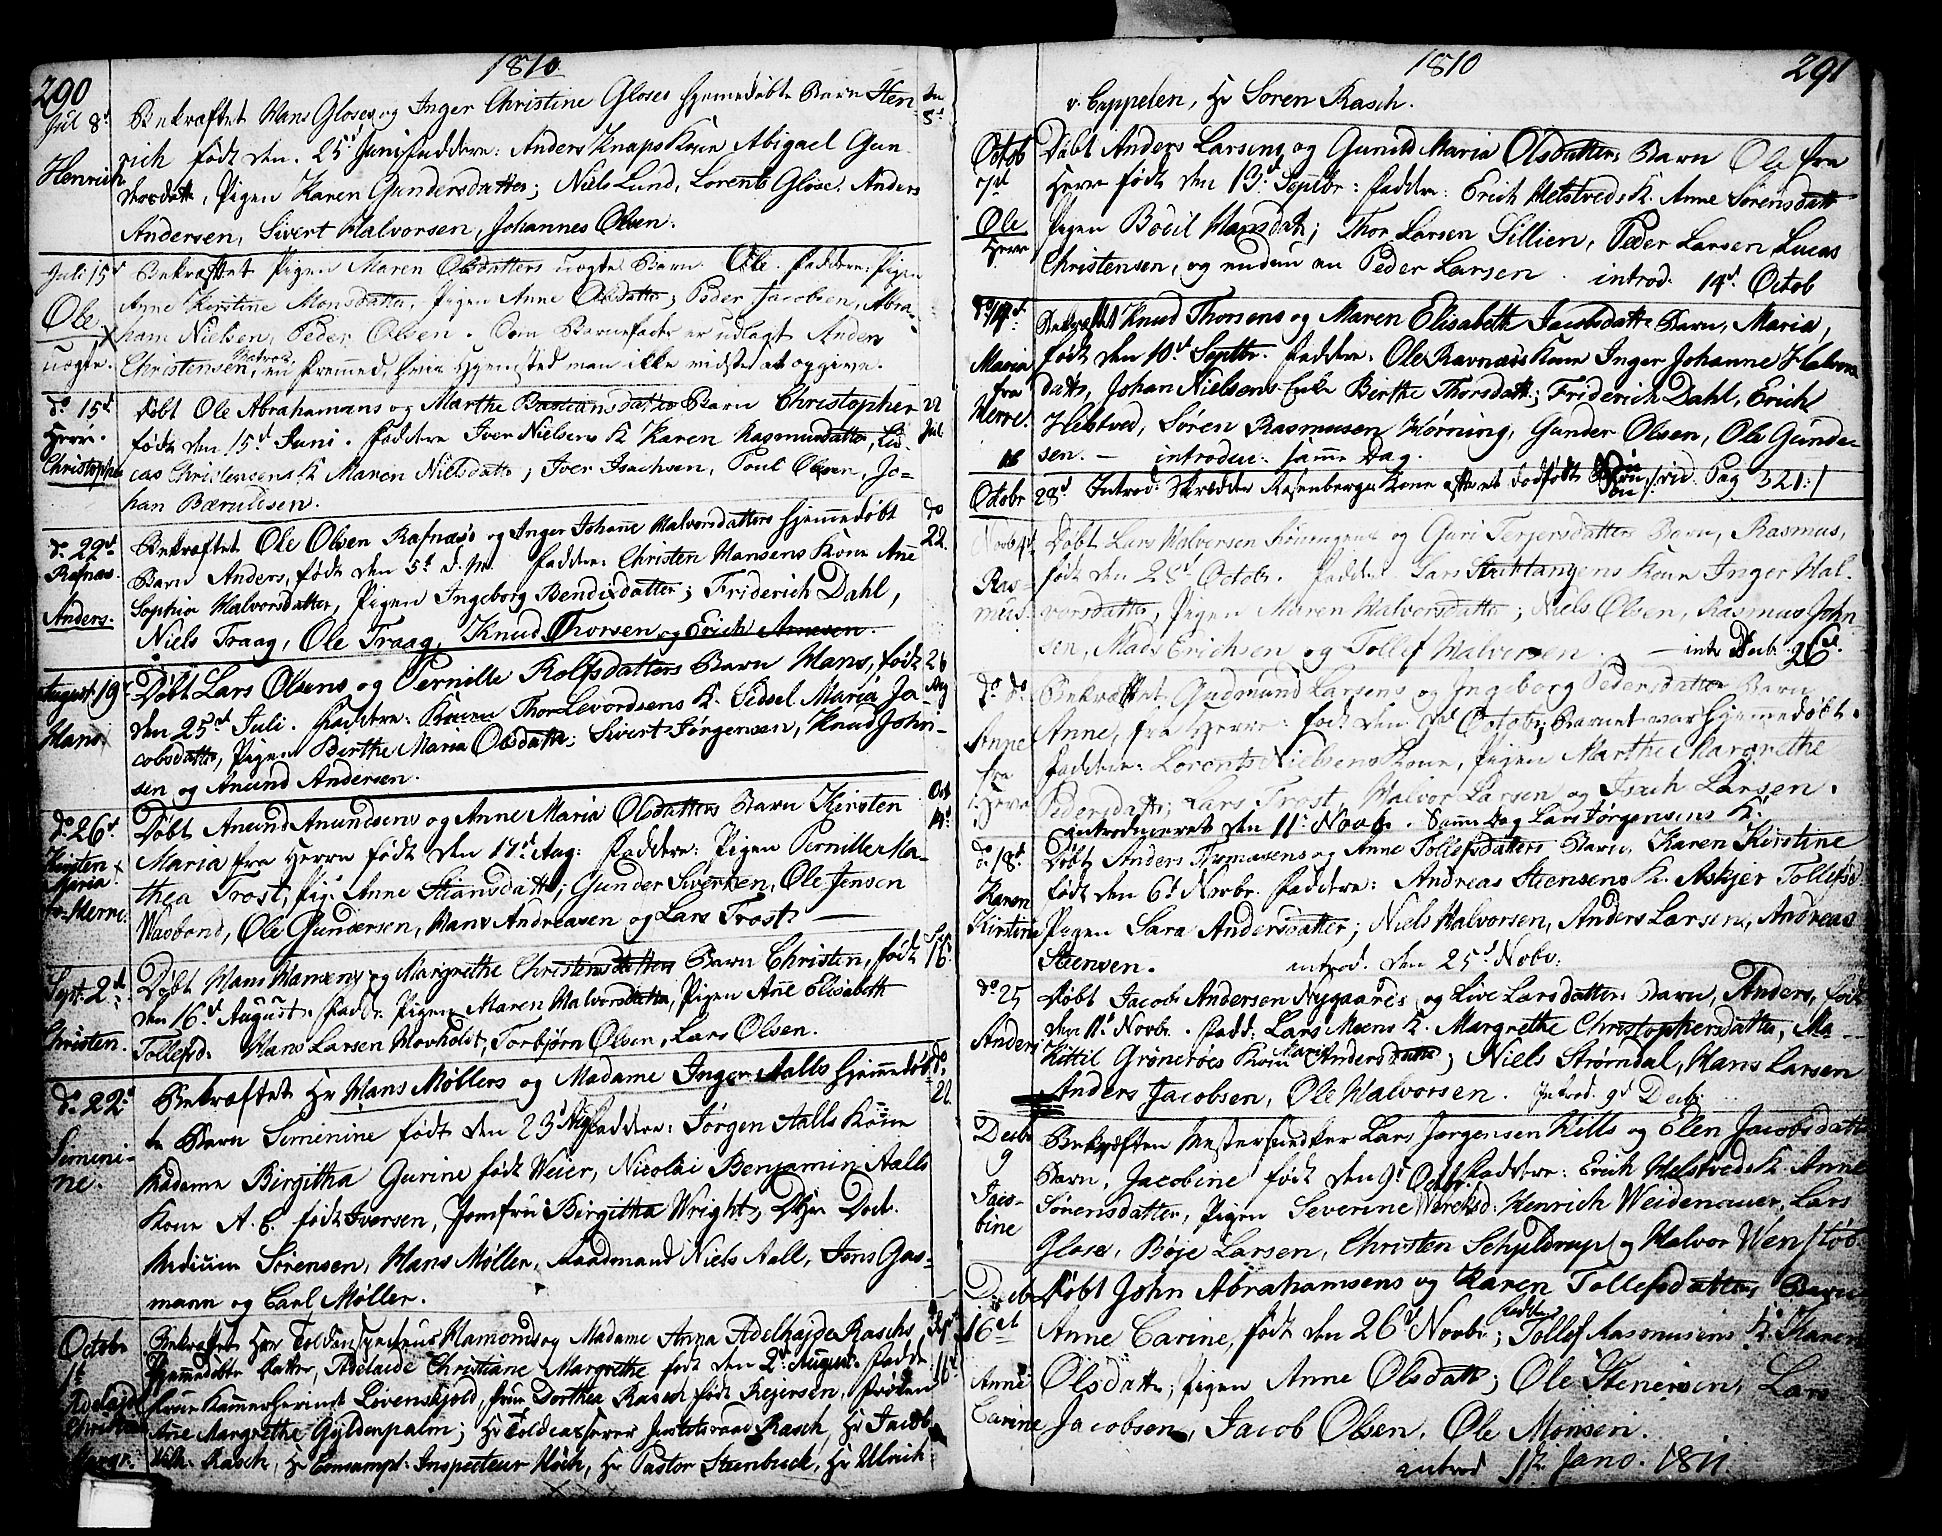 290
1810
Jul 8d
Henrich
Bekræftet Hans Gloses og Inger Christine Gloses hjemedøbte Barn Hen-
rich født den 25d Juni Faddere: Anders Knaps Kone Abigael Gun-
dersdatt, Pigen Karen Gundersdatter; Niels Lund, Lorents Glose, Anders
Andersen, Sivert Halvorsen, Johannes Olsen.
Juli 15d
Ole
uægte.
Bekræftet Pigen Maren Olsdatters uægte Barn Ole. Faddere: Pigen
Anne Kirstine Monsdatter, Pigen Anne Olsdatter; Peder Jacobsen, Abra-
ham Nielsen, Peder Olsen. Som Barnefader er udlagt Anders
Christensen, Matros, en fremmed, hvis Hjemsted man ikke vidste at opgive.
do 15d
Herre.
Christopher
Døbt Ole Abrahamsens og Marthe Bastiansdatters Barn Christopher
født den 15d Juni. Faddere Iver Nielsens K Karen Rasmusdatter, Lu-
cas Christensens K Maren Nielsdatter; Iver Isachsen, Poul Olsen, Jo-
han Bærulfsen.
22
Jul
do 22d
Rafnæs
Anders.
Bekræftet Ole Olsen Rafnæs og Inger Johane Halvorsdatters hjemmedøbt
Barn Anders, født den 5d d. M. Faddere: Christen Hansens Kone Ane
Sophia Halvorsdatter, Pigen Ingeborg Bendixdatter; Friderich Dahl,
Niels Traag, Ole Traag, Knud Thorsen og Erich Arnesen.
do
22.
August 19
Hans
Døbt Lars Olsens og Pernille Rolfsdatters Barn Hans, født
den 25d Juli. Faddere: Konen Thor Levordsens K. Sidsel Maria Ja-
cobsdatter, Pigen Berthe Maria Olsdatter; Sivert Jørgensen, Knud John-
sen og Anund Andersen.
26
Aug
do 26d
Kirsten
Maria
fr. Herre
Døbt Anund Anundsens og Anne Maria Olsdatters Barn Kirsten
Maria fra Herre født den 17d Aug: Faddere: Pigen Pernille Ma-
thea Trost, Pig: Anne Stiansdatter; Gunder Sivertsen, Ole Jensen
Waabond, Ole Gundersen, Hans Andreasen og Lars Trost.
Oct
14d
Sept. 2d
Christen.
Døbt Hans Hansens og Margrethe Christensdatters Barn Christen, født
den 16d August. Fadd: Pigen Maren Halvorsdatter, Pigen Ane Elisabeth
Tollefsd: Hans Larsen Hovholt, Torbjørn Olsen, Lars Olsen.
16.
do 22d
Simeni-
ne.
Bekræftet Hr Hans Møllers og Madame Inger Aalls hjemmedøb-
te Barn Simenine født den 23d Aug Faddere: Jørgen Aalls Kone
Madame Birgitha Gurine født Weier, Nicolai Benjamin Aalls
Kone A. C. født Iversen, Jomfru Birgitha Wright, Doct.
Medicin Sørensen, Hans Møller, Kaadmand Niels Aall, Jens Gas-
mann og Carl Møller.
do
22.
Octobr
Adelaide
Christiane
Margr.
Bekræftet Herr Toldinspecteur Hamonds og Madame Anna Adelhajde Raschs
hjemmedøbte Datter, Adelaide Christiane Margrethe født den 2d August. Fadde:
Frue Kammerherinde Løvenskjold, Frue Dorthea Rasch født Rejersen, Frøken
Ane Margrethe Gyldenpalm; Hr Toldcasserer Justitsraad Rasch, Hr Jacob
Wilh. Rasch, Hr Inspecteur Høch, Hr Pastor Steenbuck, Hr Ullrich
1810
291
v. Cappelen, Hr Søren Rasch.
Octob
7d
Ole
Herre
Døbt Anders Larsens og Gunild Maria Olsdatters Barn Ole fra
Herre født den 13d Septbr: Faddere: Erich Helstveds K. Anne Sørensdatt
Pigen Bodil Hansdatt; Thor Larsen Sillien, Peder Larsen Lucas
Christensen, og endnu en Peder Larsen. introd. 14d Octob
do 14d
Maria
fra
Herre.
Bekræftet Knud Thorsens og Maren Elisabeth Jacobsdatt Barn, Maria,
født den 10d Septbr. Faddere: Ole Ravnæs Kone Inger Johanne Halvors-
datt, Johan Nielsens Enke Berthe Thorsdatt; Friderich Dahl, Erich
Helstved, Søren Rasmusen Hørning, Gunder Olsen, Ole Gunder
sen. — introducr: samme Dag.
Octobr
28d Introd: Skredder Rosenbergs Kone efter et dødfødt Barn /: vid. Pag 321 :/
Novb 4d
Ras-
mus.
Døbt Lars Halversen og Guri Terjersdatters Barn, Rasmus,
født den 28d Octobr. Faddere Lars Stathtangens Kone Inger Hal-
vorsdatter, Pigen Maren Halvorsdatter; Niels Olsen, Rasmus John-
sen, Mads Erichsen og Tollef Halversen. — intr Decb 26d
do do
Anne
fra
Herre
Bekræftet Gudmund Larsens og Ingeborg Pedersdatters Barn
Anne, fra Herre: født den Octobr; Barnet var hjemmedøbt.
Faddere: Lorents Nielsens Kone, Pigen Marthe Margrethe
Pedersdatt; Lars Trost, Halvor Larsen og Isach Larsen.
introduceret den 11d Novb. Samme Dag Lars Jørgensens K.
do 18d
Karen
Kirstine
Døbt Anders Thomasens og Anne Tollefsdatters Barn, Karen Kirstine
født den 6d Novbr. Faddere: Andreas Steensens K. Askjer Tollefsd.
Pigen Sara Andersdatter; Niels Halvorsen, Anders Larsen, Andreas
Steensen. introd. den 25d Novbr:
do 25
Anders
Døbt Jacob Andersen Nygaards og Live Larsdatters Barn, Anders, født
den 11d Novbr. Fadd: Lars Moens K. Margrethe Christophersdatter, Ma-
Kittil Grønerøes Kone Mari Andersdatter; Niels Strømdal, Hans Larsen
Anders Jacobsen, Ole Halvorsen. Introd. 9d Decb:
Decbr
9
Jaco-
bine
Bekræften Lars Jørgensen Kills og Elen Jacobsdatter
Barn, Jacobine født den 9d Octbr. Faddere: Erich Helstveds K. Anne
Sørensdatter, Pigen Severine; Henrich Weidenauer, Lars
Glose, Böje Larsen, Christen Schjeldrup og Halvor Wenstøb.
Decbr
16d
Anne
Carine
Døbt John Abrahamsens og Karen Tollefsdatters Barn
Anne Carine, født den 26d Novbr; Faddere Tollef Rasmusens K. Karen
Olsdatt, Pigen Anne Olsdatt; Ole Stenersen, Lars
Jacobsen, Jacob Olsen, Ole Monsen.
introd 1te Jano. 1811.